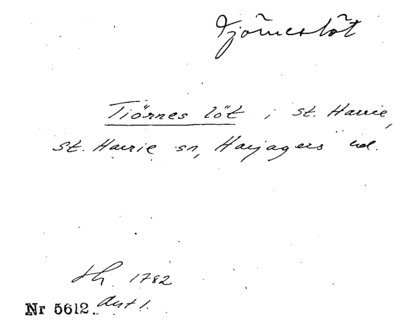 Tjörneslöt
Tiörnes löt i St. Harrie,
St. Harrie sn, Harjagers hd.
Lh. 1782
Akt 1.
Nr 5612.